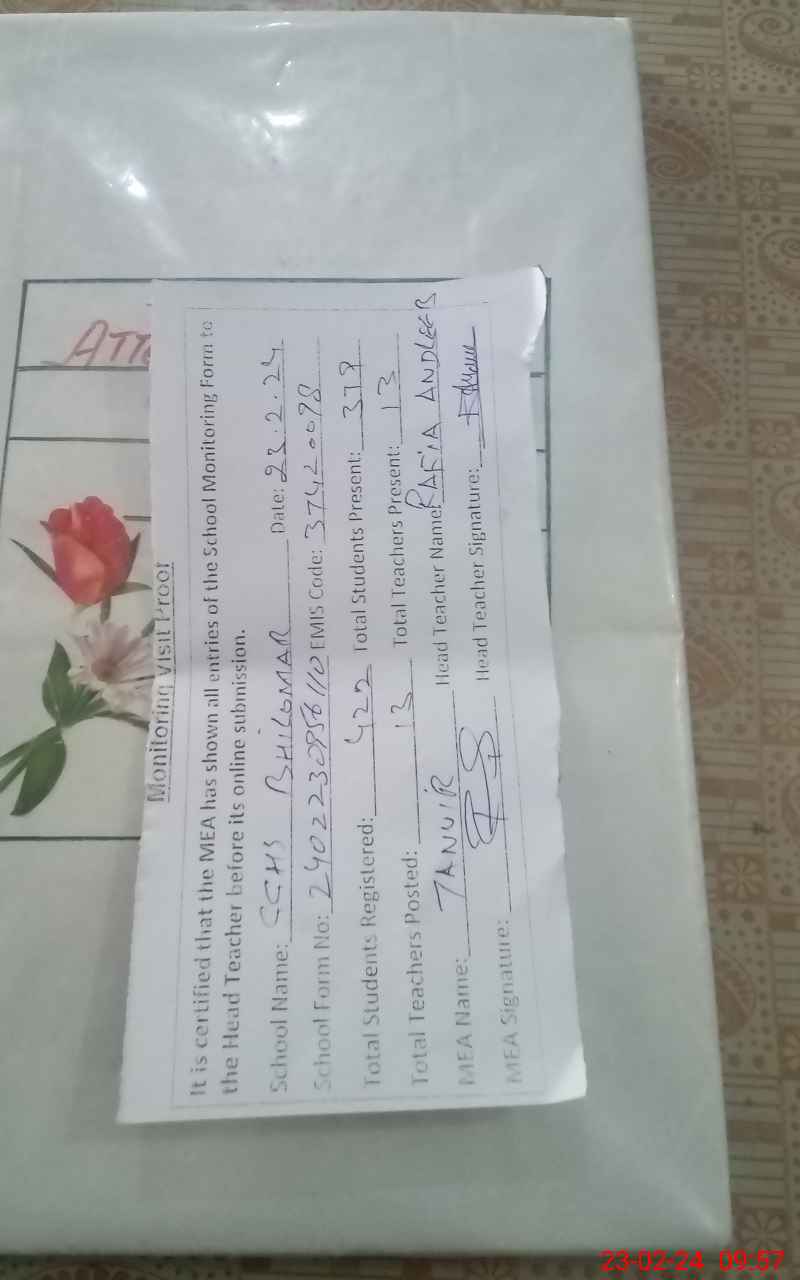 ATTE
Monitoring Visit Proof
It is certified that the MEA has shown all entries of the School Monitoring Form to
the Head Teacher before its online submission.
School Name: GGHS BHILOMAR Date: 23.2.24
School Form No: 2402230956110 EMIS Code: 37420098
Total Students Registered: 422 Total Students Present: 379
Total Teachers Posted: 13 Total Teachers Present: 13
MEA Name: TANVIR Head Teacher Name: RAFIA ANDLEEB
MEA Signature: Head Teacher Signature:
23-02-24 09:57